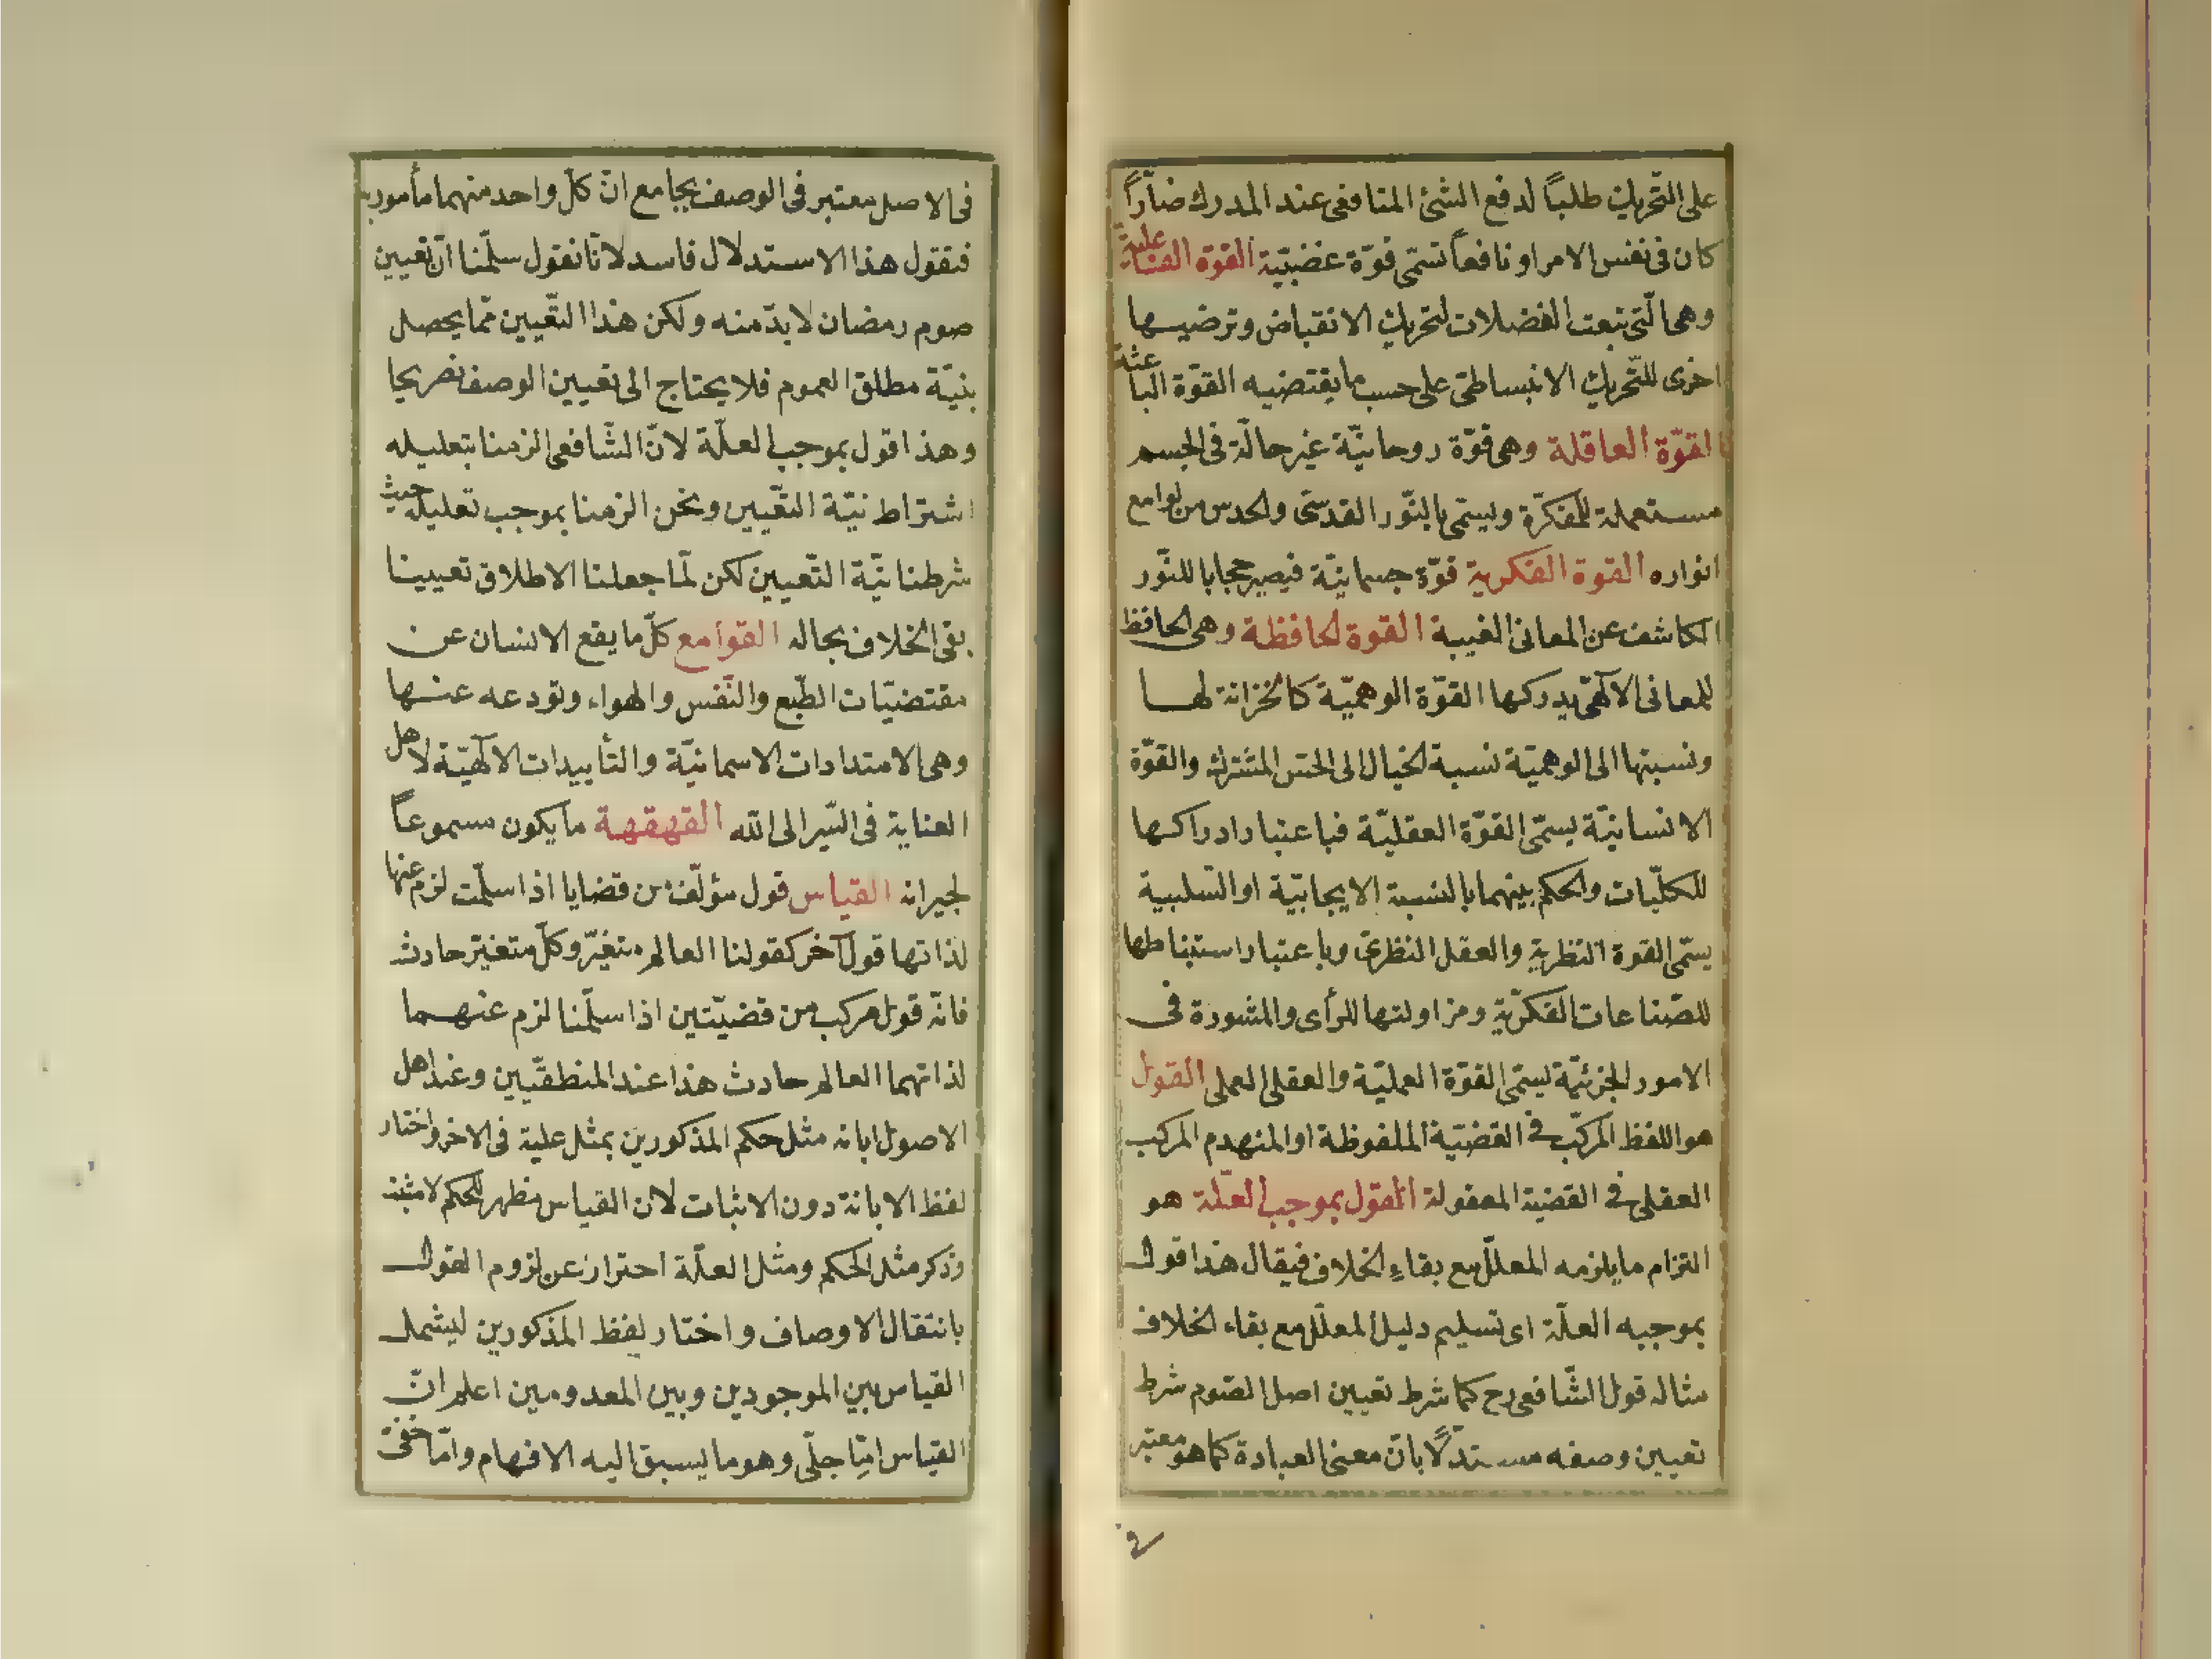 على التّحريك طلباً لدفع الشئ المنافى عند المدرك ضارّاً
كان فى نفس الامر او نافعاً تسمّى قوّة غضبيّة القوة الفاعلية
وهى الّتى تبعث العضلات لتحريك الانقباض وترضيها
اخرى للتّحريك الانبساطى على حسب ما يقتضيه القوّة الباعثة
القوّة العاقلة وهى قوّة روحانيّة غير حالّة فى الجسم
مستعملة للمفكّرة ويسمّى بالنّور القدسى والحدس من لوامع
انواره القوة الفكرية قوّة جسمانيّة فيصير حجابا للنّور
الكاشف عن المعانى الغيبية القوة الحافظة وهى الحافظ
للمعانى الآلهىّ يدركها القوّة الوهميّة كالخزانة لها
ونسبتها الى الوهميّة نسبة الخيال الى الحسّ المشترك والقوّة
الانسانيّة يسمّى القوّة العقليّة فباعتبار ادراكها
للكلّيات والحكم بينهما بالنسبة الايجابيّة او السّلبية
يسمّى القوة النظرية والعقل النظرى وباعتبار استنباطها
للصّناعات الفكرّية ومزاولتها للرأى والمشورة فى
الامور الجزئيّة يسمّى القوّة العمليّة والعقل العملى القول
هو اللفظ المركّب فى القضيّة الملفوظة او المنهدم المركب
العقلى فى القضية المعقولة القول بموجب العلّة هو
التزام ما يلزمه المعلّل مع بقاء الخلاف فيقال هذا قول
بموجبه العلّة اى تسليم دليل المعلّل مع بقاء الخلاف
مثاله قول الشّافعى رح كما شرط تعيين اصل الصّوم شرط
تعيين وصفه مستدلّاً بانّ معنى العبادة كما هو معتبر
فى
فى الاصل معتبر فى الوصف بجامع انّ كلّ واحد منهما مأمور به
فنقول هذا الاستدلال فاسد لانّا نقول سلّمنا انّ تعيين
صوم رمضان لابدّ منه ولكن هذا التّعيين ممّا يحصل
بنيّة مطلق العموم فلا يحتاج الى تعيين الوصف تصريحا
وهذا قول بموجب العلّة لانّ الشّافعى الزمنا بتعليله
اشتراط نيّة التّعيين ونحن الزمنا بموجب تعليله حيث
شرطنا نيّة التّعيين لكن لمّا جعلنا الاطلاق تعيينا
بقى الخلاف بحاله القوامع كلّ ما يقع الانسان عن
مقتضيّات الطّبع والنّفس والهواء وتودعه عنها
وهى الامتدادات الاسمانيّة والتأييدات الآلهيّة لاهل
العناية فى السّير الى الله القهقهة ما يكون مسموعاً
لجيرانه القياس قول مؤلّف من قضايا اذا سلّمت لزم عنها
لذاتها قول آخر كقولنا العالم متغيّر وكلّ متغيّر حادث
فانّه قول مركب من قضيّتين اذا سلّمنا لزم عنهما
لذاتهما العالم حادث هذا عند المنطقّيين وعند اهل
الاصول ابانه مثل حكم المذكورين بمثل علية فى الاخر واختار
لفظ الابانة دون الاثبات لان القياس مظهر للحكم لا مثبت
وذكر مثل الحكم ومثل العلّة احتراز عن لزوم القول
بانتقال الاوصاف واختار لفظ المذكورين ليشمل
القياس بين الموجودين وبين المعدومين اعلم انّ
القياس امّا جلّى وهو ما يسبق اليه الافهام وامّا خفىّ